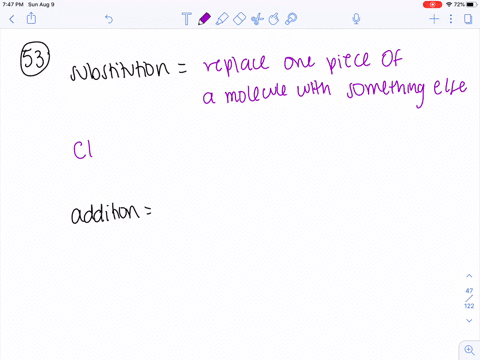 7:47 PM Sun Aug 9
72%
53
substitution = replace one piece of
a molecule with something else
Cl
addition =
47
/
122